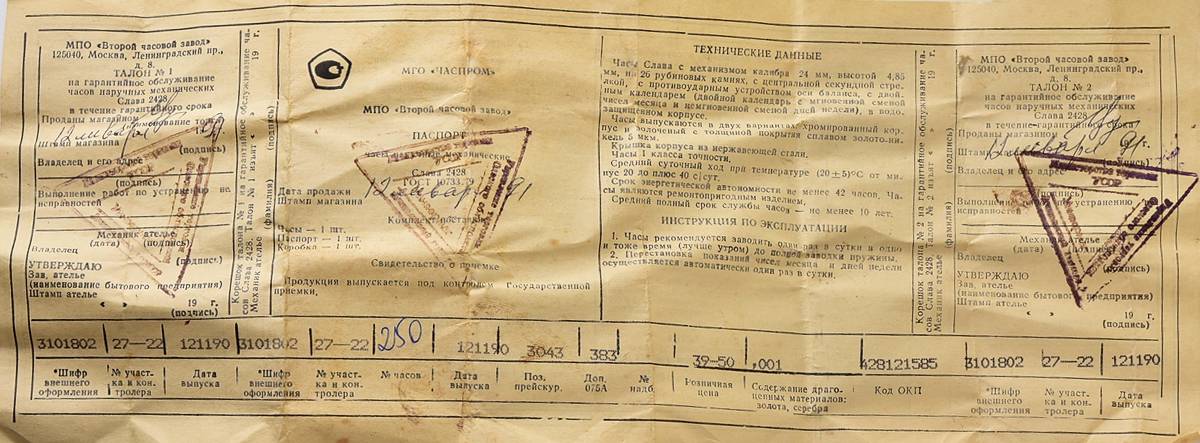 МПО «Второй часовой завод»
125040, Москва, Ленинградский пр.,
д. 8.
ТАЛОН № 1
на гарантийное обслуживание
часов наручных механических
Слава 2428
в течение гарантийного срока
Проданы магазином
Штамп магазина
(подпись)
Владелец и его адрес
(подпись)
Выполнение работ по устранению не
исправностей
Механик ателье
(дата) (подпись)
Владелец
(подпись)
УТВЕРЖДАЮ
Зав. ателье
(наименование бытового предприятия)
Штамп ателье
« » 19 г.
(подпись)
Корешок талона № 1 на гарантийное обслуживание ча-
сов Слава 2428. Талон № 1 изъят « » 19 г.
Механик ателье
(фамилия) (подпись)
МГО «ЧАСПРОМ»
МПО «Второй часовой завод»
ПАСПОРТ
Часы наручные механические
Слава 2428
ГОСТ 10733.79
Дата продажи
Штамп магазина
91
Комплект поставки
Часы — 1 шт.
Паспорт — 1 шт.
Коробка — 1 шт.
Свидетельство о приемке
Продукция выпускается под контролем Государственной
приемки.
ТЕХНИЧЕСКИЕ ДАННЫЕ
Часы Слава с механизмом калибра 24 мм, высотой 4,85
мм, на 26 рубиновых камнях, с центральной секундной стре-
лкой, с противоударным устройством оси баланса, с двой-
ным календарем (двойной календарь с мгновенной сменой
чисел месяца и немгновенной сменой дней недели), в водо-
защищенном корпусе.
Часы выпускаются в двух вариантах: хромированный кор-
пус и золоченый с толщиной покрытия сплавом золото-ни-
кель 5 мкм.
Крышка корпуса из нержавеющей стали.
Часы 1 класса точности.
Средний суточный ход при температуре (20±5)°С от ми-
нус 20 до плюс 40 с/сут.
Срок энергетической автономности не менее 42 часов. Ча-
сы являются ремонтопригодным изделием.
Средний полный срок службы часов — не менее 10 лет.
ИНСТРУКЦИЯ ПО ЭКСПЛУАТАЦИИ
1. Часы рекомендуется заводить один раз в сутки в одно
и тоже время (лучше утром) до полной заводки пружины.
2. Перестановка показаний чисел месяца и дней недели
осуществляется автоматически один раз в сутки.
Корешок талона № 2 на гарантийное обслуживание ча-
сов Слава 2428. Талон № 2 изъят « » 19 г.
Механик ателье
(фамилия) (подпись)
МПО «Второй часовой завод»
125040, Москва, Ленинградский пр.,
д. 8.
ТАЛОН № 2
на гарантийное обслуживание
часов наручных механических
Слава 2428
в течение гарантийного срока
Проданы магазином
Штамп магазина
91 г.
(подпись)
Владелец и его адрес
(подпись)
Выполнение работ по устранению не
исправностей
Механик ателье
(дата) (подпись)
Владелец
(подпись)
УТВЕРЖДАЮ
Зав. ателье
(наименование бытового предприятия)
Штамп ателье
« » 19 г.
(подпись)
3101802 27—22 121190 3101802 27—22 250 121190 3043 383 39-50 ,001 428121585 3101802 27—22 121190
*Шифр внешнего оформления
№ участ-ка и кон-тролера
Дата выпуска
*Шифр внешнего оформления
№ участ-ка и кон-тролера
№ часов
Дата выпуска
Поз. прейскур.
Доп. 075А
№ надб.
Розничная цена
Содержание драго-ценных материалов: золота, серебра
Код ОКП
*Шифр внешнего оформления
№ участ-ка и кон-тролера
Дата выпуска